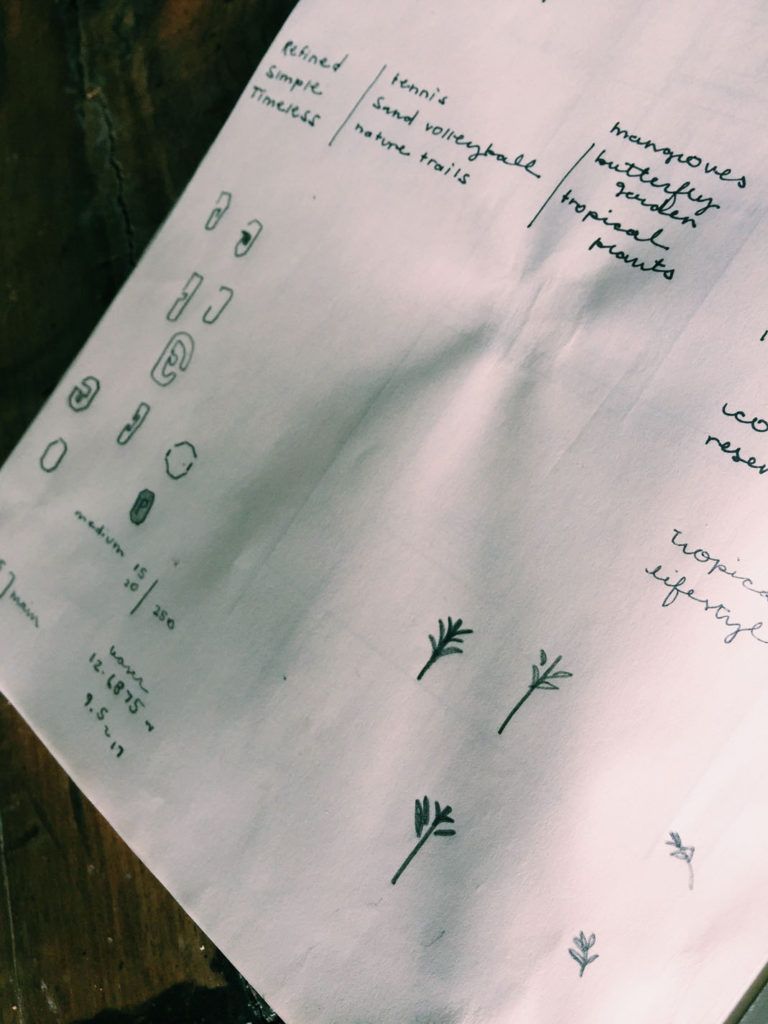 Refined
Simple
Timeless
tennis
sand volleyball
nature trails
mangroves
butterfly
garden
tropical
plants
reser
tropica
lifestyle
medium 15
20 / 250
] main
12.6875
9.5